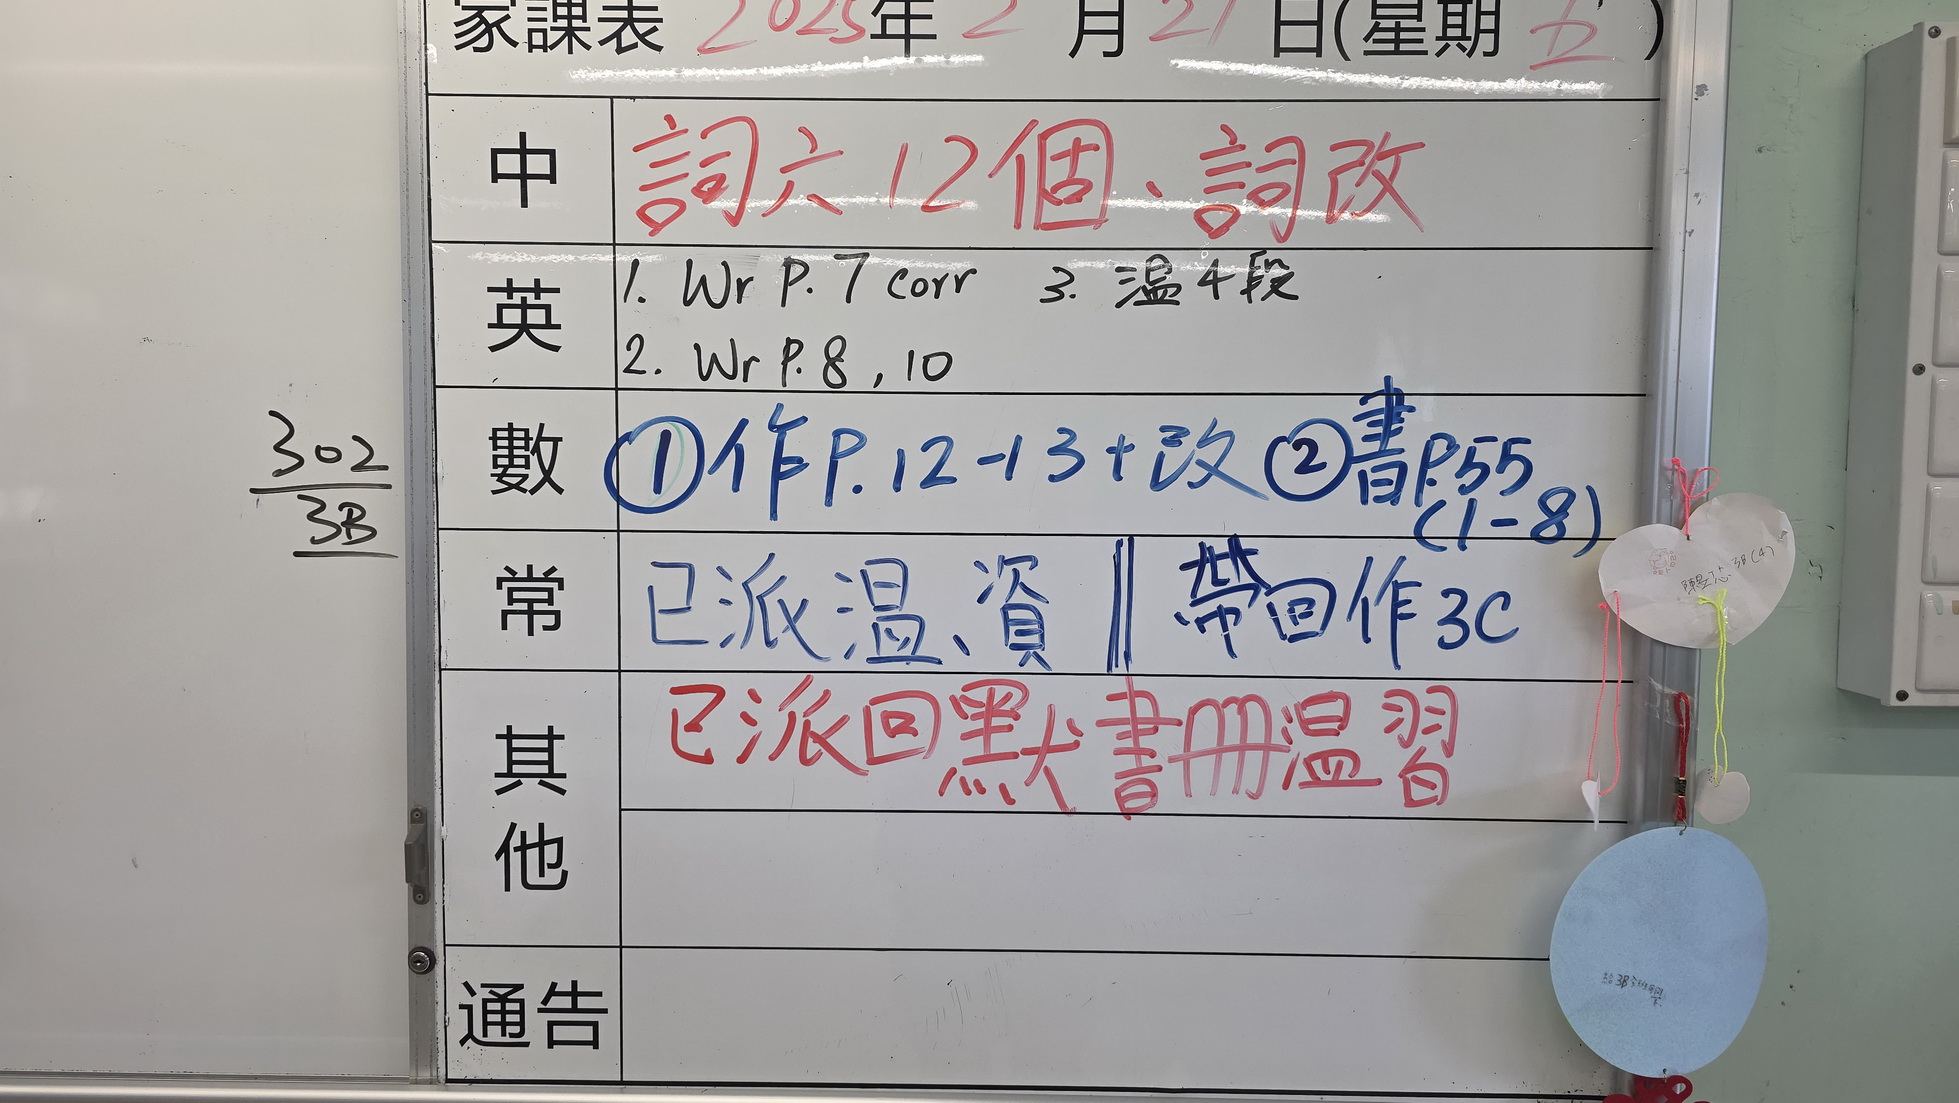 家課表 2025年 2月 21日(星期 五)
中 詞六 12個、詞改
英 1. Wr P. 7 corr 3. 溫4段
2. Wr P. 8 , 10
數 ①作P. 12-13+改 ②書P.55
(1-8)
302
3B
常 已派溫、資 || 帶回作3C
其他 已派回默書冊溫習
通告
3B(4)